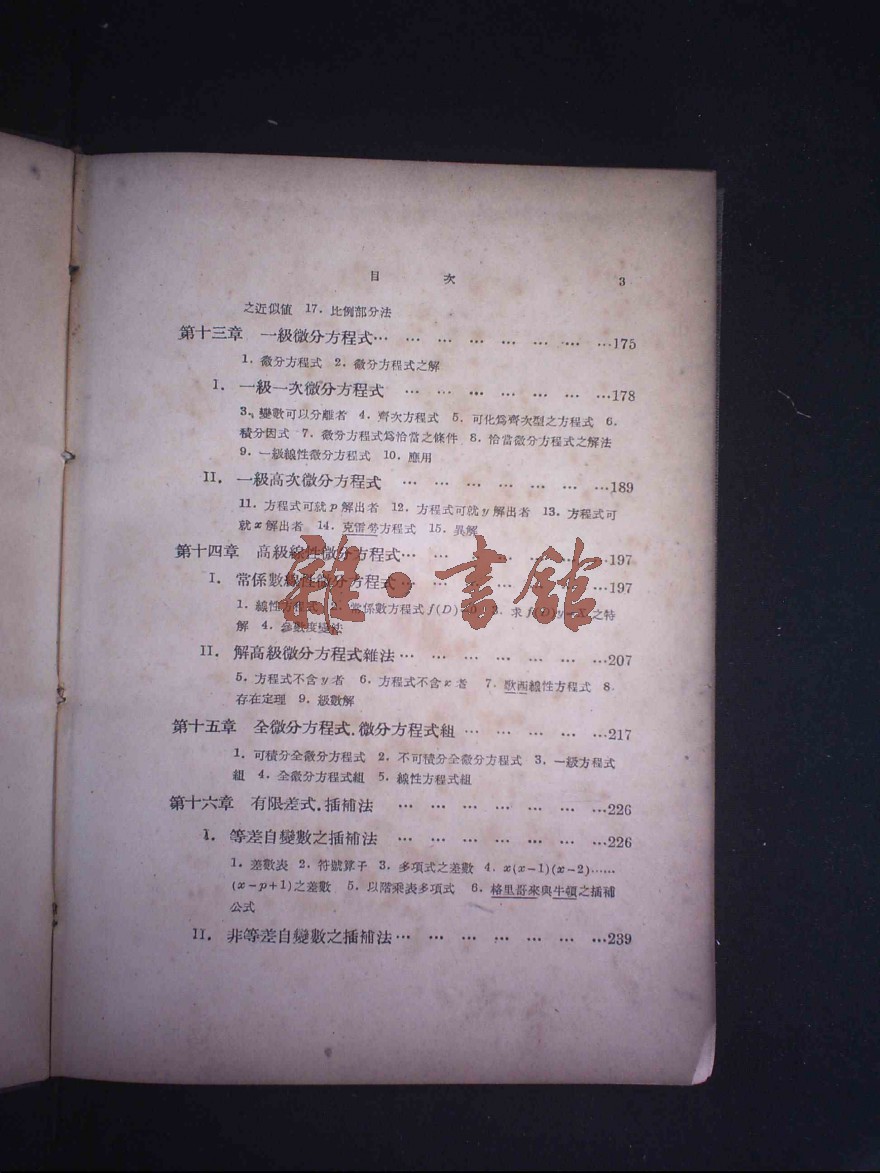 目 次 3
之近似值 17. 比例部分法
第十三章 一級微分方程式… … … … … … … …175
1. 微分方程式 2. 微分方程式之解
I. 一級一次微分方程式 … … … … … … …178
3. 變數可以分離者 4. 齊次方程式 5. 可化爲齊次型之方程式 6.
積分因式 7. 微分方程式爲恰當之條件 8. 恰當微分方程式之解法
9. 一級線性微分方程式 10. 應用
II. 一級高次微分方程式 … … … … … … …189
11. 方程式可就 p 解出者 12. 方程式可就 y 解出者 13. 方程式可
就 x 解出者 14. 克雷勞方程式 15. 異解
第十四章 高級線性微分方程式… … … … … … …197
I. 常係數線性微分方程式… … … … … … …197
1. 線性方程式 2. 常係數方程式 f(D) 3. 求 之特
解 4. 參數度變法
II. 解高級微分方程式雜法… … … … … … …207
5. 方程式不含 y 者 6. 方程式不含 x 者 7. 歐西線性方程式 8.
存在定理 9. 級數解
第十五章 全微分方程式.微分方程式組 … … … … …217
1. 可積分全微分方程式 2. 不可積分全微分方程式 3. 一級方程式
組 4. 全微分方程式組 5. 線性方程式組
第十六章 有限差式.插補法 … … … … … … …226
I. 等差自變數之插補法 … … … … … … …226
1. 差數表 2. 符號算子 3. 多項式之差數 4. x(x−1)(x−2)……
(x−p+1)之差數 5. 以階乘表多項式 6. 格里哥來與牛頓之插補
公式
II. 非等差自變數之插補法… … … … … … …239
雜·書館